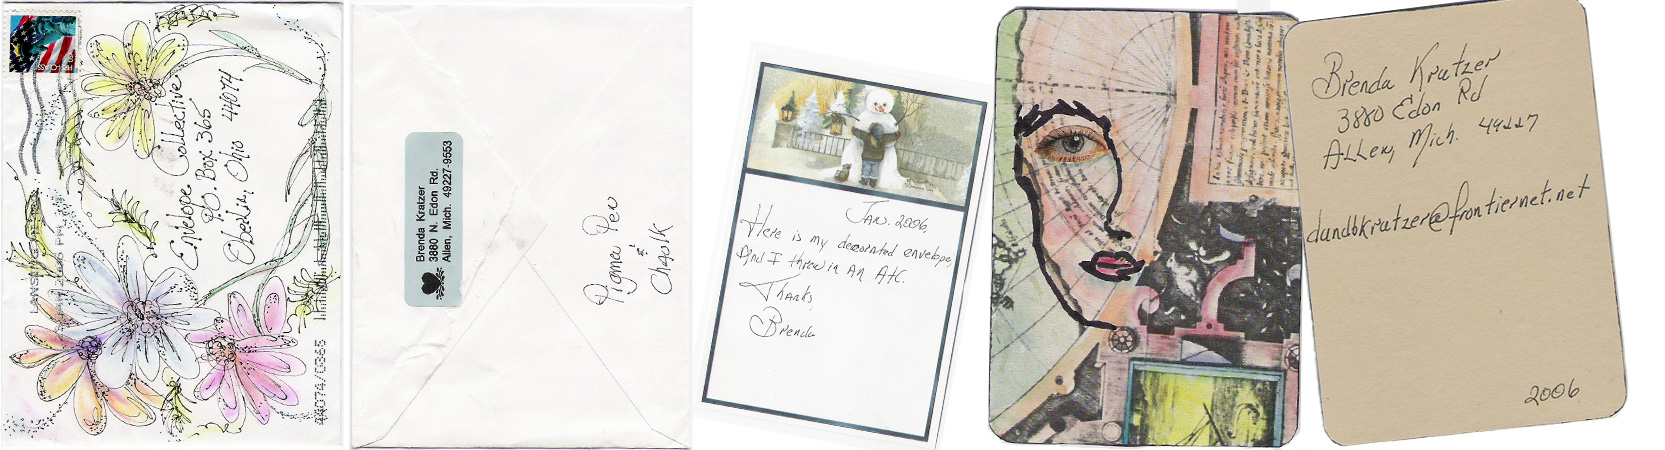 LANSING
Envelope Collective
P.O. Box 365
Oberlin, Ohio 44074
44074/0365
Brenda Kratzer
3880 N. Edon Rd.
Allen, Mich. 49227-9553
Pigma Pen
&
Chaulk
Jan. 2006
Here is my decorated envelope,
And I threw in an ATC.
Thanks,
Brenda
Brenda Kratzer
3880 Edon Rd
Allen, Mich. 49227
dandbkratzer@frontiernet.net
2006